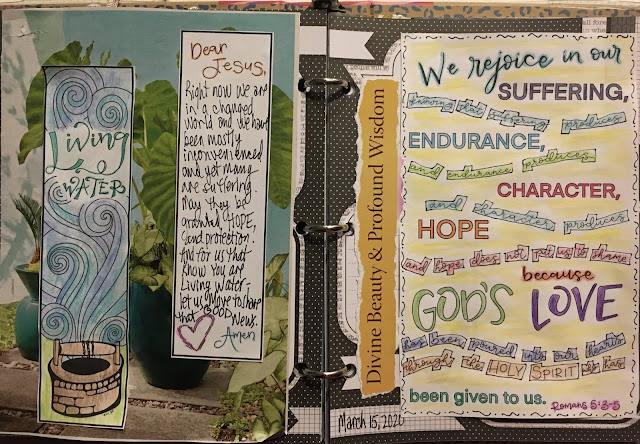 Living
WATER
Dear
Jesus,
Right now we are
in a changed
world and we have
been mostly
inconvenienced
and yet many
are suffering.
May they be
granted, HOPE,
and protection.
And for us that
know you are
Living Water-
let us move to share
that GOOD News.
Amen
Divine Beauty & Profound Wisdom
March 15, 2020
We rejoice in our
SUFFERING,
knowing that suffering produces
ENDURANCE,
and endurance produces
CHARACTER,
and character produces
HOPE
and hope does not put us to shame
because
GOD'S LOVE
has been poured into our hearts
through the HOLY SPIRIT who has
been given to us. Romans 5:3-5